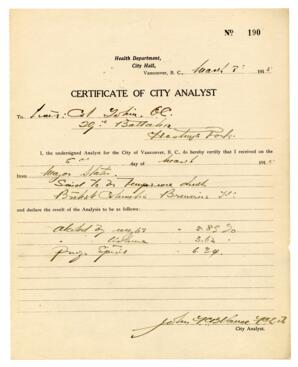 No 190
Health Department,
City Hall,
Vancouver, B. C., March 5th 1915
CERTIFICATE OF CITY ANALYST
To Lieut: Col Tobin. O.C.
29th Battalion
Hastings Park.
I, the undersigned Analyst for the City of Vancouver, B. C., do hereby certify that I received on the
day of March 1915
from Major
Said to be Temperance
British Columbia Breweries
and declare the result of the Analysis to be as follows:
Alcohol by weight - 2.89%
" Volume - 3.62 "
Proof Spirit - 6.34
City Analyst.